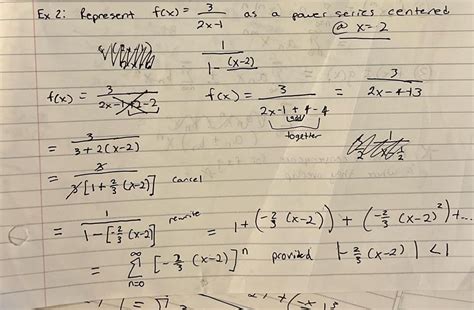 Ex 2: Represent f(x) = 3/(2x-1) as a power series centered
@ x = 2
1/(1-(x-2))
f(x) = 3/(2x-1+2-2) f(x) = 3/(2x-1+4-4) = 3/(2x-4+3)
add
together
= 3/(3+2(x-2))
= 3/(3[1+2/3(x-2)]) cancel
= 1/(1-[-2/3(x-2)]) rewrite = 1+(-2/3(x-2))+(-2/3(x-2)²)+...
= ∞∑n=0 [-2/3(x-2)]ⁿ provided |-2/3(x-2)| < 1